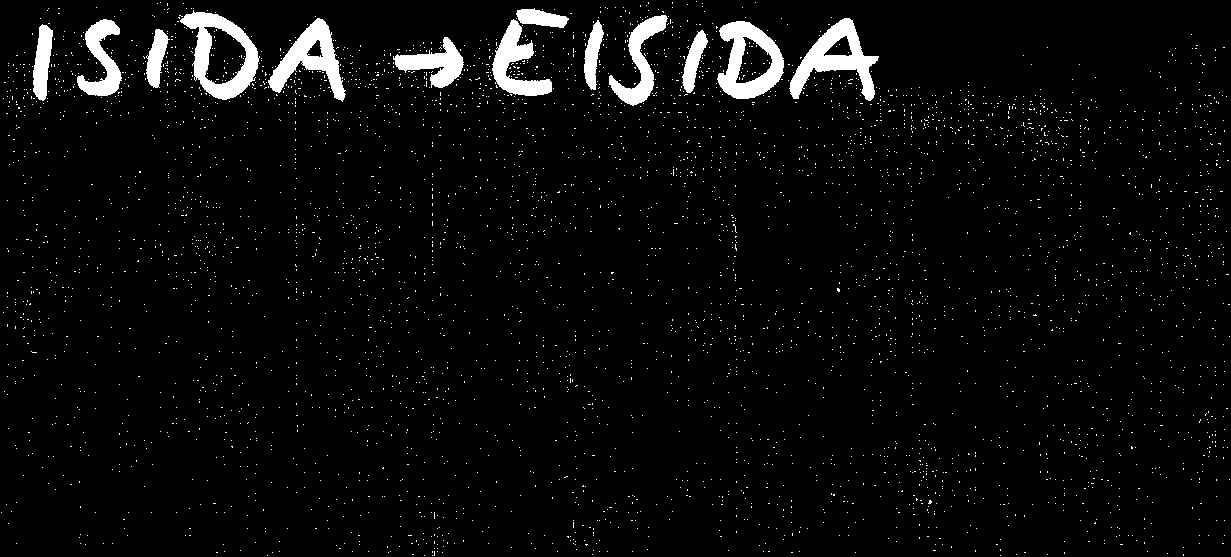 ISIDA → EISIDA